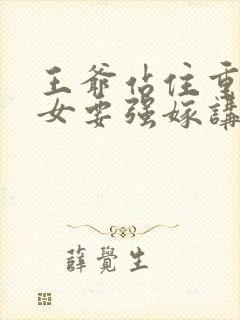 王爺站住重
女要强嫁講
薛覺生